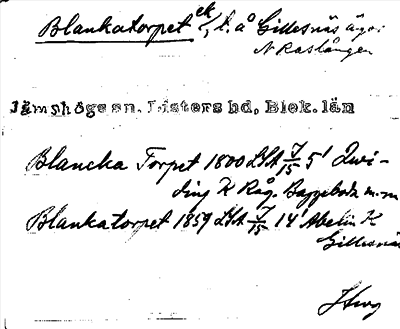 Blankatorpet ek/, l. å Gillesnäs ägor
N Raslången
Jämshögs sn. Listers hd, Blek. län
Blancka Torpet 1800 LSA 7/15 5' Dwi-
ding K Råg. Baggeboda m.m
Blankatorpet 1859 LSA 7/15 14' Abelin K
Gillesnäs